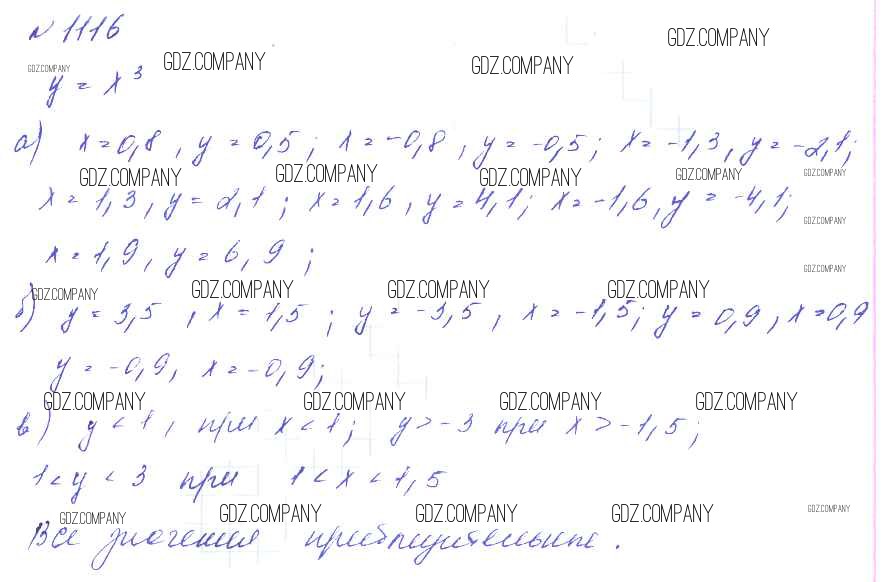 N 1116
GDZ.COMPANY
GDZ.COMPANY GDZ.COMPANY GDZ.COMPANY
y = x³
а) x=0,8, y=0,5; x=-0,8, y=-0,5; x=-1,3, y=-2,1;
GDZ.COMPANY GDZ.COMPANY GDZ.COMPANY GDZ.COMPANY GDZ.COMPANY
x=1,3, y=2,1; x=1,6, y=4,1; x=-1,6, y=-4,1;
GDZ.COMPANY
x=1,9, y=6,9;
GDZ.COMPANY
GDZ.COMPANY GDZ.COMPANY GDZ.COMPANY GDZ.COMPANY
б) y=3,5, x=1,5; y=-3,5, x=-1,5; y=0,9, x=0,9
y=-0,9, x=-0,9;
GDZ.COMPANY GDZ.COMPANY GDZ.COMPANY GDZ.COMPANY
в) y<1, при x<1; y>-3 при x>-1,5;
1<y<3 при 1<x<1,5
GDZ.COMPANY GDZ.COMPANY GDZ.COMPANY GDZ.COMPANY GDZ.COMPANY
Все значения приблизительные.